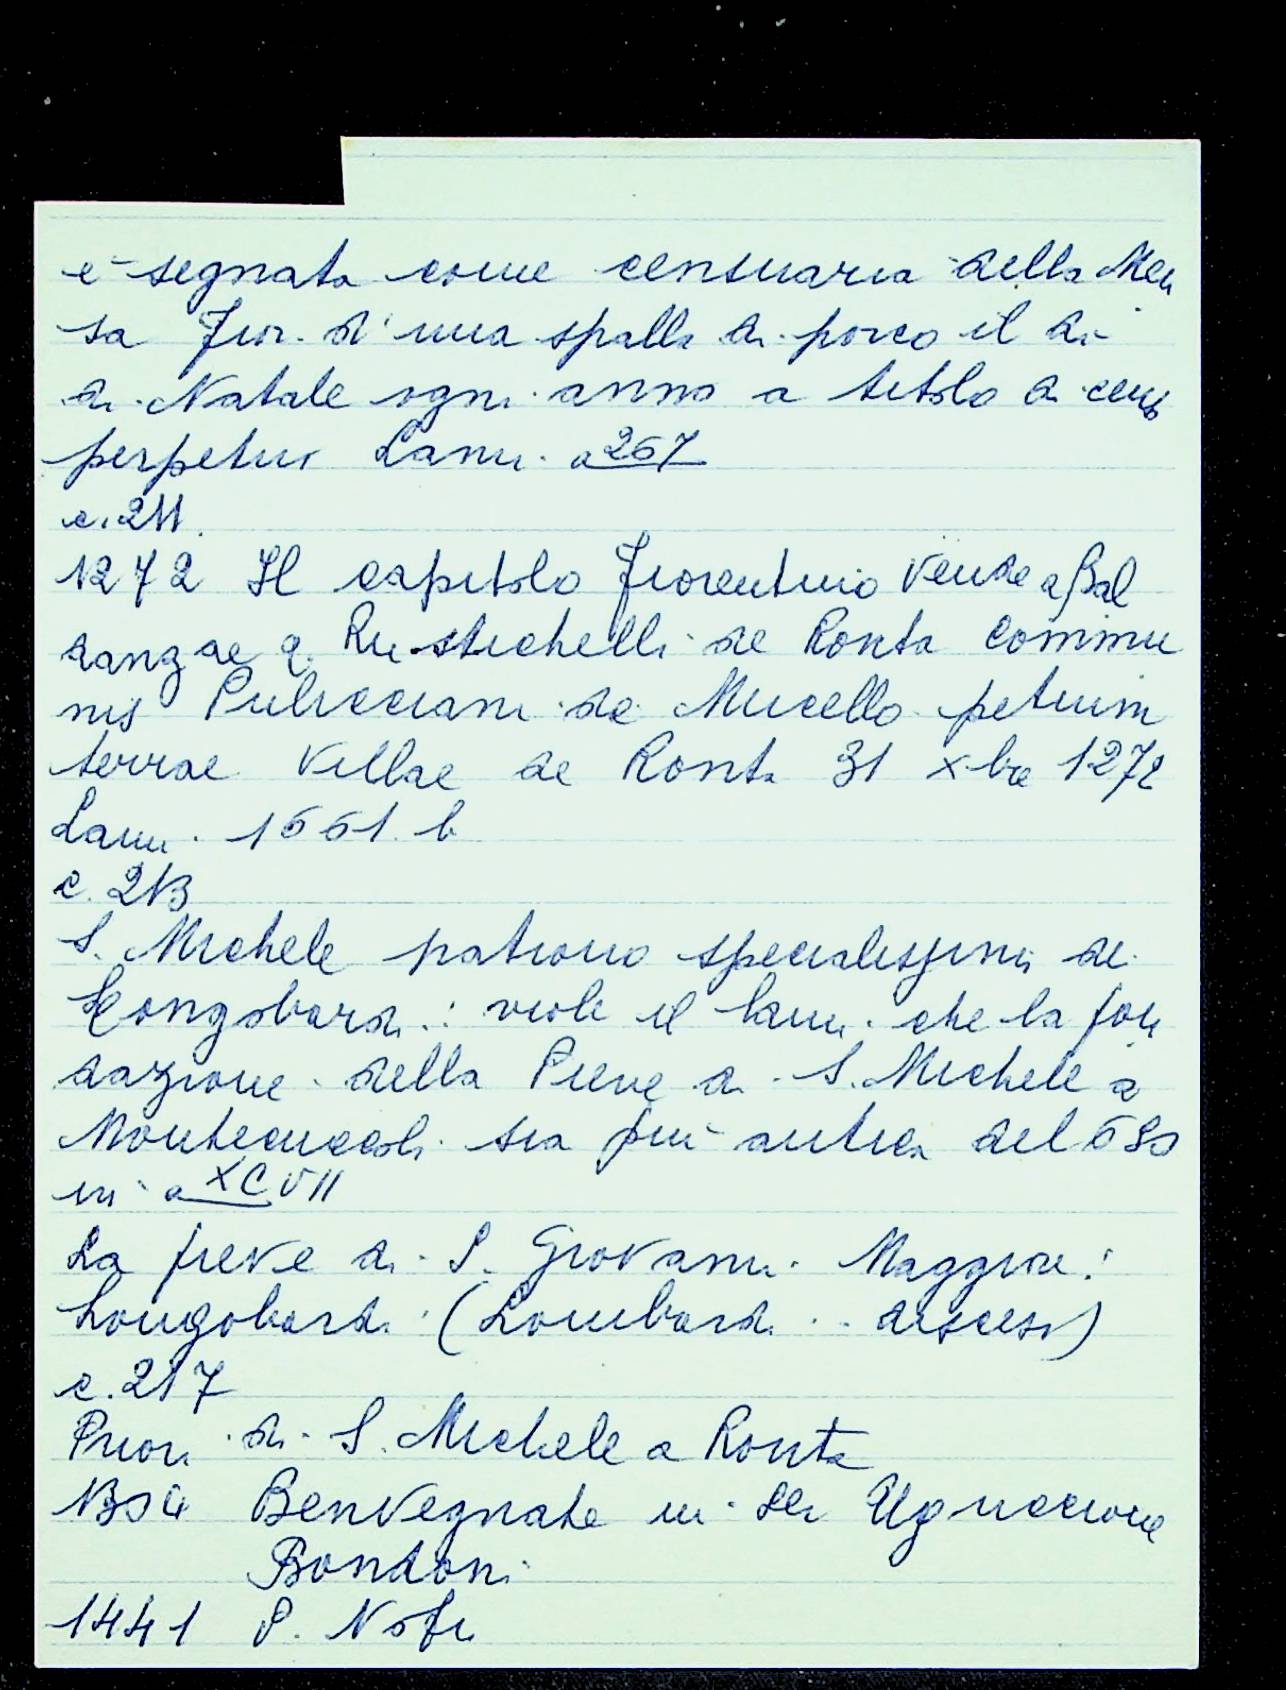 è segnata come censuaria della Men
sa Fior. d'una spalla di porco il dì
di Natale ogni anno a titolo di cens
perpetuo Lami. a 267
c. 211.
1272 Il capitolo Fiorentino vende a Bal
danzae q. Rustichelli de Ronta Commu
nis Pulicciani de Mucello petium
terrae Villae de Ronta 31 xbre 1272
Lami. 1661. b
c. 213
S. Michele patrono specialissimi dei
Longobardi: vuole il Lami. che la fon
dazione della Pieve di S. Michele a
Montecuccoli sia più antica del 680
in a XCVII
La pieve di S. Giovanni Maggiore:
Longobardi (Lombardi .. discesi)
c. 217
Priori di S. Michele a Ronta
1304 Benvegnate in Ser Uguccione
Bondoni
1441 P. Nofri